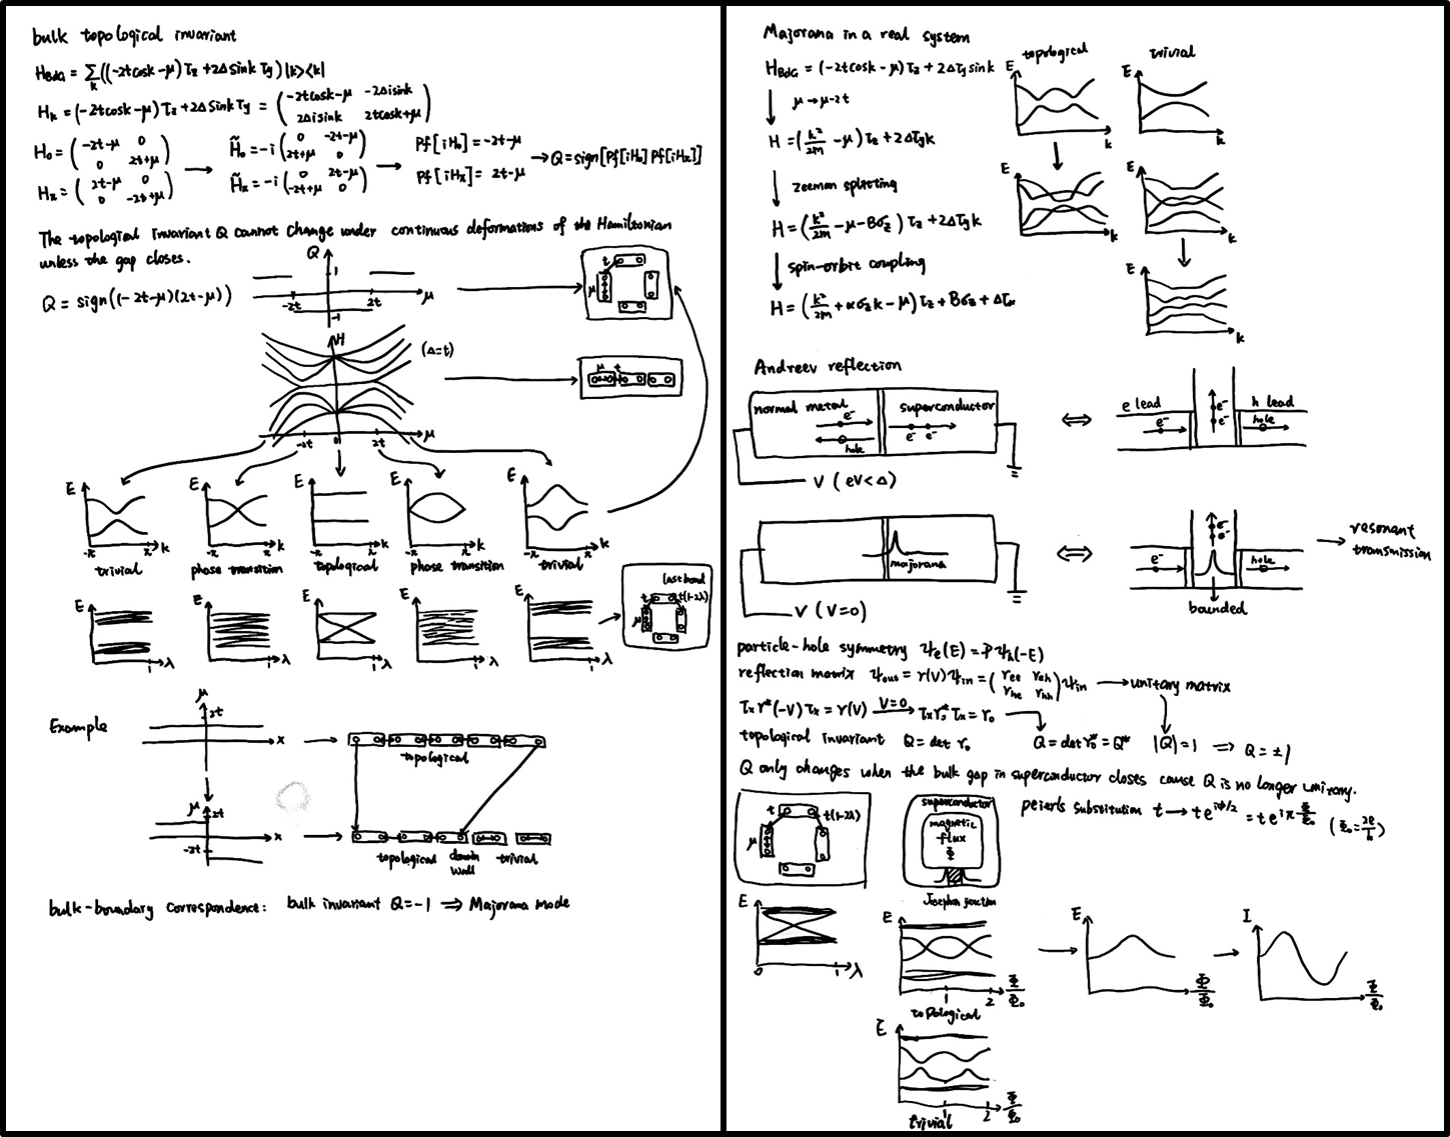 bulk topological invariant
H_BdG = Σ_k ((-2tcosk-μ)τz + 2Δsink τy)|k><k|
H_k = (-2tcosk-μ)τz + 2Δsink τy = ( -2tcosk-μ -2Δisink
2Δisink 2tcosk+μ )
H₀ = ( -2t-μ 0
0 2t+μ ) → H̃₀ = -i ( 0 -2t-μ
2t+μ 0 ) → Pf[iH₀] = -2t-μ
H_π = ( 2t-μ 0
0 -2t+μ ) H̃_π = -i ( 0 2t-μ
-2t+μ 0 ) Pf[iH_π] = 2t-μ
→ Q = sign[Pf[iH₀] Pf[iH_π]]
The topological invariant Q cannot change under continuous deformations of the Hamiltonian
unless the gap closes.
Q = sign((-2t-μ)(2t-μ))
Q 1 -2t 2t μ -1
t μ
H (Δ=t)
-2t 0 2t μ
μ t
E -π π k trivial
E -π π k phase transition
E -π π k topological
E -π π k phase transition
E -π π k trivial
E 1 λ
E 1 λ
E 1 λ
E 1 λ
E 1 λ
last bond
t t(1-2λ)
μ
Example
μ 2t x →
topological
μ 2t -2t x →
topological domain wall trivial
bulk-boundary correspondence: bulk invariant Q=-1 ⇒ Majorana mode
Majorana in a real system
H_BdG = (-2tcosk-μ)τz + 2Δτy sink
μ→μ-2t
H = (k²/2m - μ)τz + 2Δτyk
Zeeman splitting
H = (k²/2m - μ - Bσz)τz + 2Δτyk
spin-orbit coupling
H = (k²/2m + ασzk - μ)τz + Bσz + Δτx
topological trivial
E k E k
E k E k
E k
Andreev reflection
normal metal e⁻ hole superconductor e⁻ e⁻
V (eV<Δ)
⇔
e lead e⁻ e⁻ e⁻ h lead hole
majorana
V (V=0)
⇔
e⁻ e⁻ e⁻ hole → resonant
transmission
bounded
particle-hole symmetry Ψe(E) = PΨh(-E)
reflection matrix Ψout = r(V)Ψin = ( ree reh
rhe rhh )Ψin → unitary matrix
τx r*(-V)τx = r(V) V=0 → τx r₀* τx = r₀
topological invariant Q = det r₀ Q = det r₀* = Q* |Q|=1 ⇒ Q = ±1
Q only changes when the bulk gap in superconductor closes cause Q is no longer unitary.
t t(1-2λ)
μ
superconductor
magnetic
flux
Φ
Josephson junction
peierls substitution t → t e^{iφ/2} = t e^{iπ Φ/Φ₀} (Φ₀ = 2e/h)
E 0 1 λ
E 1 2 Φ/Φ₀
topological
E Φ/Φ₀
I Φ/Φ₀
E 1 2 Φ/Φ₀
trivial